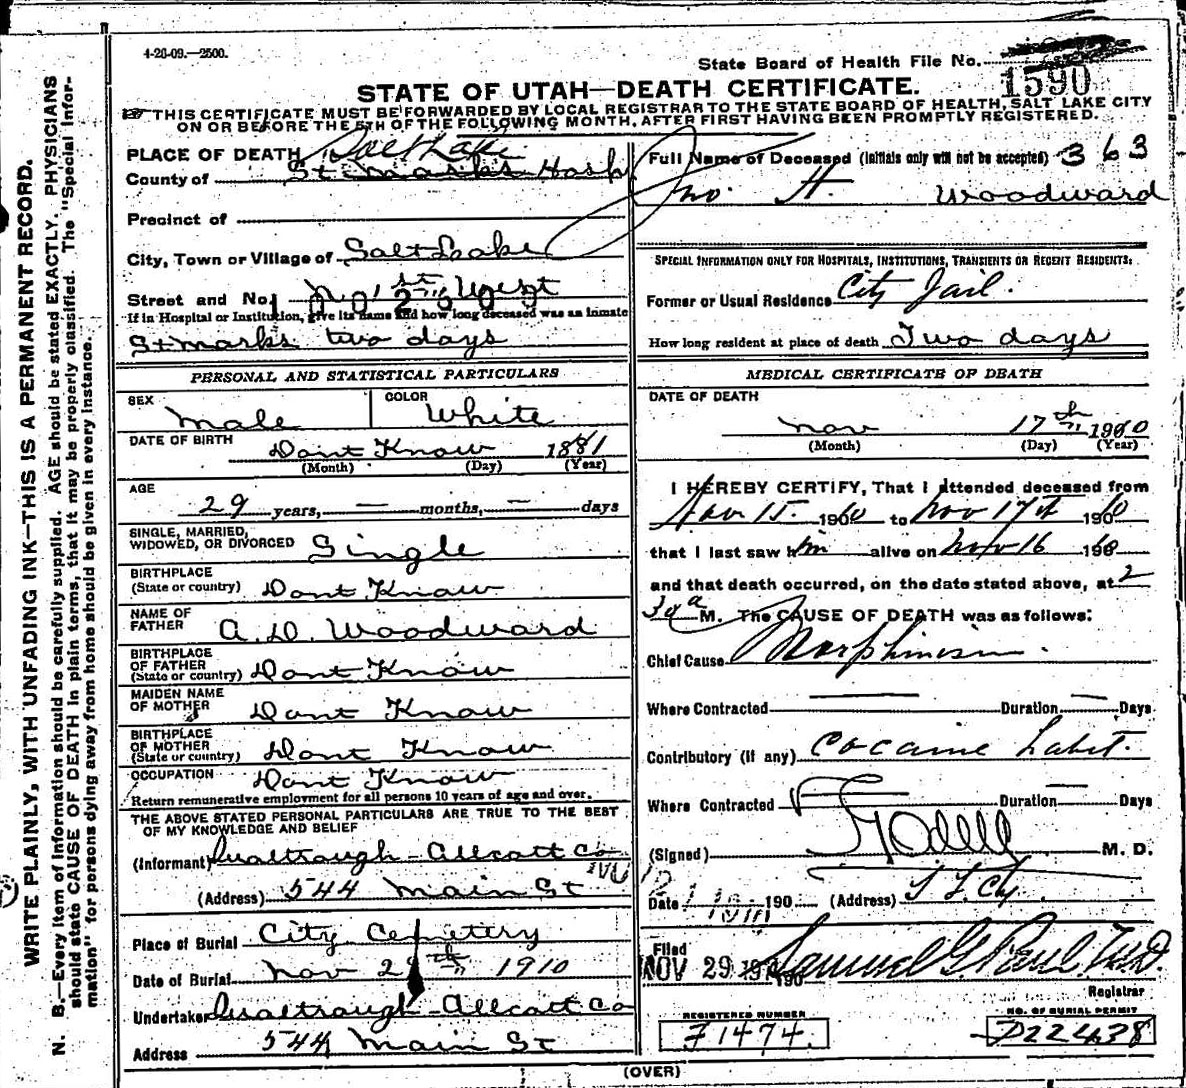 4-26-09.—2500.
State Board of Health File No.
1590
STATE OF UTAH—DEATH CERTIFICATE.
THIS CERTIFICATE MUST BE FORWARDED BY LOCAL REGISTRAR TO THE STATE BOARD OF HEALTH, SALT LAKE CITY
ON OR BEFORE THE 5TH OF THE FOLLOWING MONTH, AFTER FIRST HAVING BEEN PROMPTLY REGISTERED.
WRITE PLAINLY, WITH UNFADING INK—THIS IS A PERMANENT RECORD.
N. B.—Every item of information should be carefully supplied. AGE should be stated EXACTLY. PHYSICIANS
should state CAUSE OF DEATH in plain terms, that it may be properly classified. The "Special Infor-
mation" for persons dying away from home should be given in every instance.
PLACE OF DEATH Salt Lake
County of St. Marks Hosp
Precinct of
City, Town or Village of Salt Lake
Street and No. No. 1st West
If in Hospital or Institution, give its name and how long deceased was an inmate
St Marks two days
PERSONAL AND STATISTICAL PARTICULARS
SEX Male COLOR White
DATE OF BIRTH Dont Know 1881
(Month) (Day) (Year)
AGE 29 years, — months, — days
SINGLE, MARRIED,
WIDOWED, OR DIVORCED Single
BIRTHPLACE
(State or country) Dont Know
NAME OF
FATHER A. D. Woodward
BIRTHPLACE
OF FATHER
(State or country) Dont Know
MAIDEN NAME
OF MOTHER Dont Know
BIRTHPLACE
OF MOTHER
(State or country) Dont Know
OCCUPATION Dont Know
Return remunerative employment for all persons 10 years of age and over.
THE ABOVE STATED PERSONAL PARTICULARS ARE TRUE TO THE BEST
OF MY KNOWLEDGE AND BELIEF
(Informant) Gualtrough-Allcott Co
(Address) 544 Main St
Place of Burial City Cemetery
Date of Burial Nov 1910
Undertaker Gualtrough-Allcott Co
Address 544 Main St
Full Name of Deceased (Initials only will not be accepted) 363
Jno. H. Woodward
SPECIAL INFORMATION ONLY FOR HOSPITALS, INSTITUTIONS, TRANSIENTS OR RECENT RESIDENTS:
Former or Usual Residence City Jail.
How long resident at place of death Two days
MEDICAL CERTIFICATE OF DEATH
DATE OF DEATH
Nov 17th 1910
(Month) (Day) (Year)
I HEREBY CERTIFY, That I attended deceased from
Nov 15. 1910 to Nov 17th 1910
that I last saw him alive on Nov 16 1910
and that death occurred, on the date stated above, at 2
30 a M. The CAUSE OF DEATH was as follows:
Chief Cause Morphinism.
Where Contracted Duration — Days
Contributory (if any) Cocaine habit.
Where Contracted Duration — Days
(Signed) M. D.
Date 190 (Address) S L Cy.
Filed
NOV 29 190 Samuel G Paul M.D.
Registrar
REGISTERED NUMBER
F1474.
NO. OF BURIAL PERMIT
D22438
(OVER)